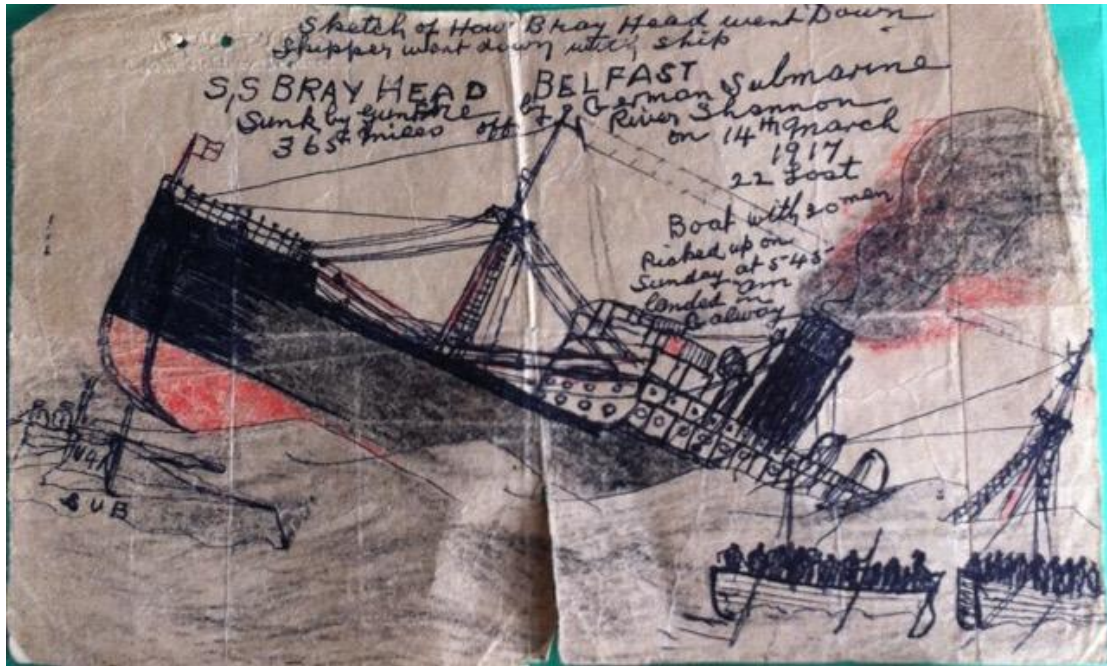 Sketch of How Bray Head went Down
Skipper went down with ship
S,S BRAY HEAD BELFAST
Sunk by gunfire of German Submarine
365 miles off River Shannon
on 14th March
1917
22 Lost
Boat with 20 men
Picked up on
Sunday at 5-45
am
landed in
Galway
SUB